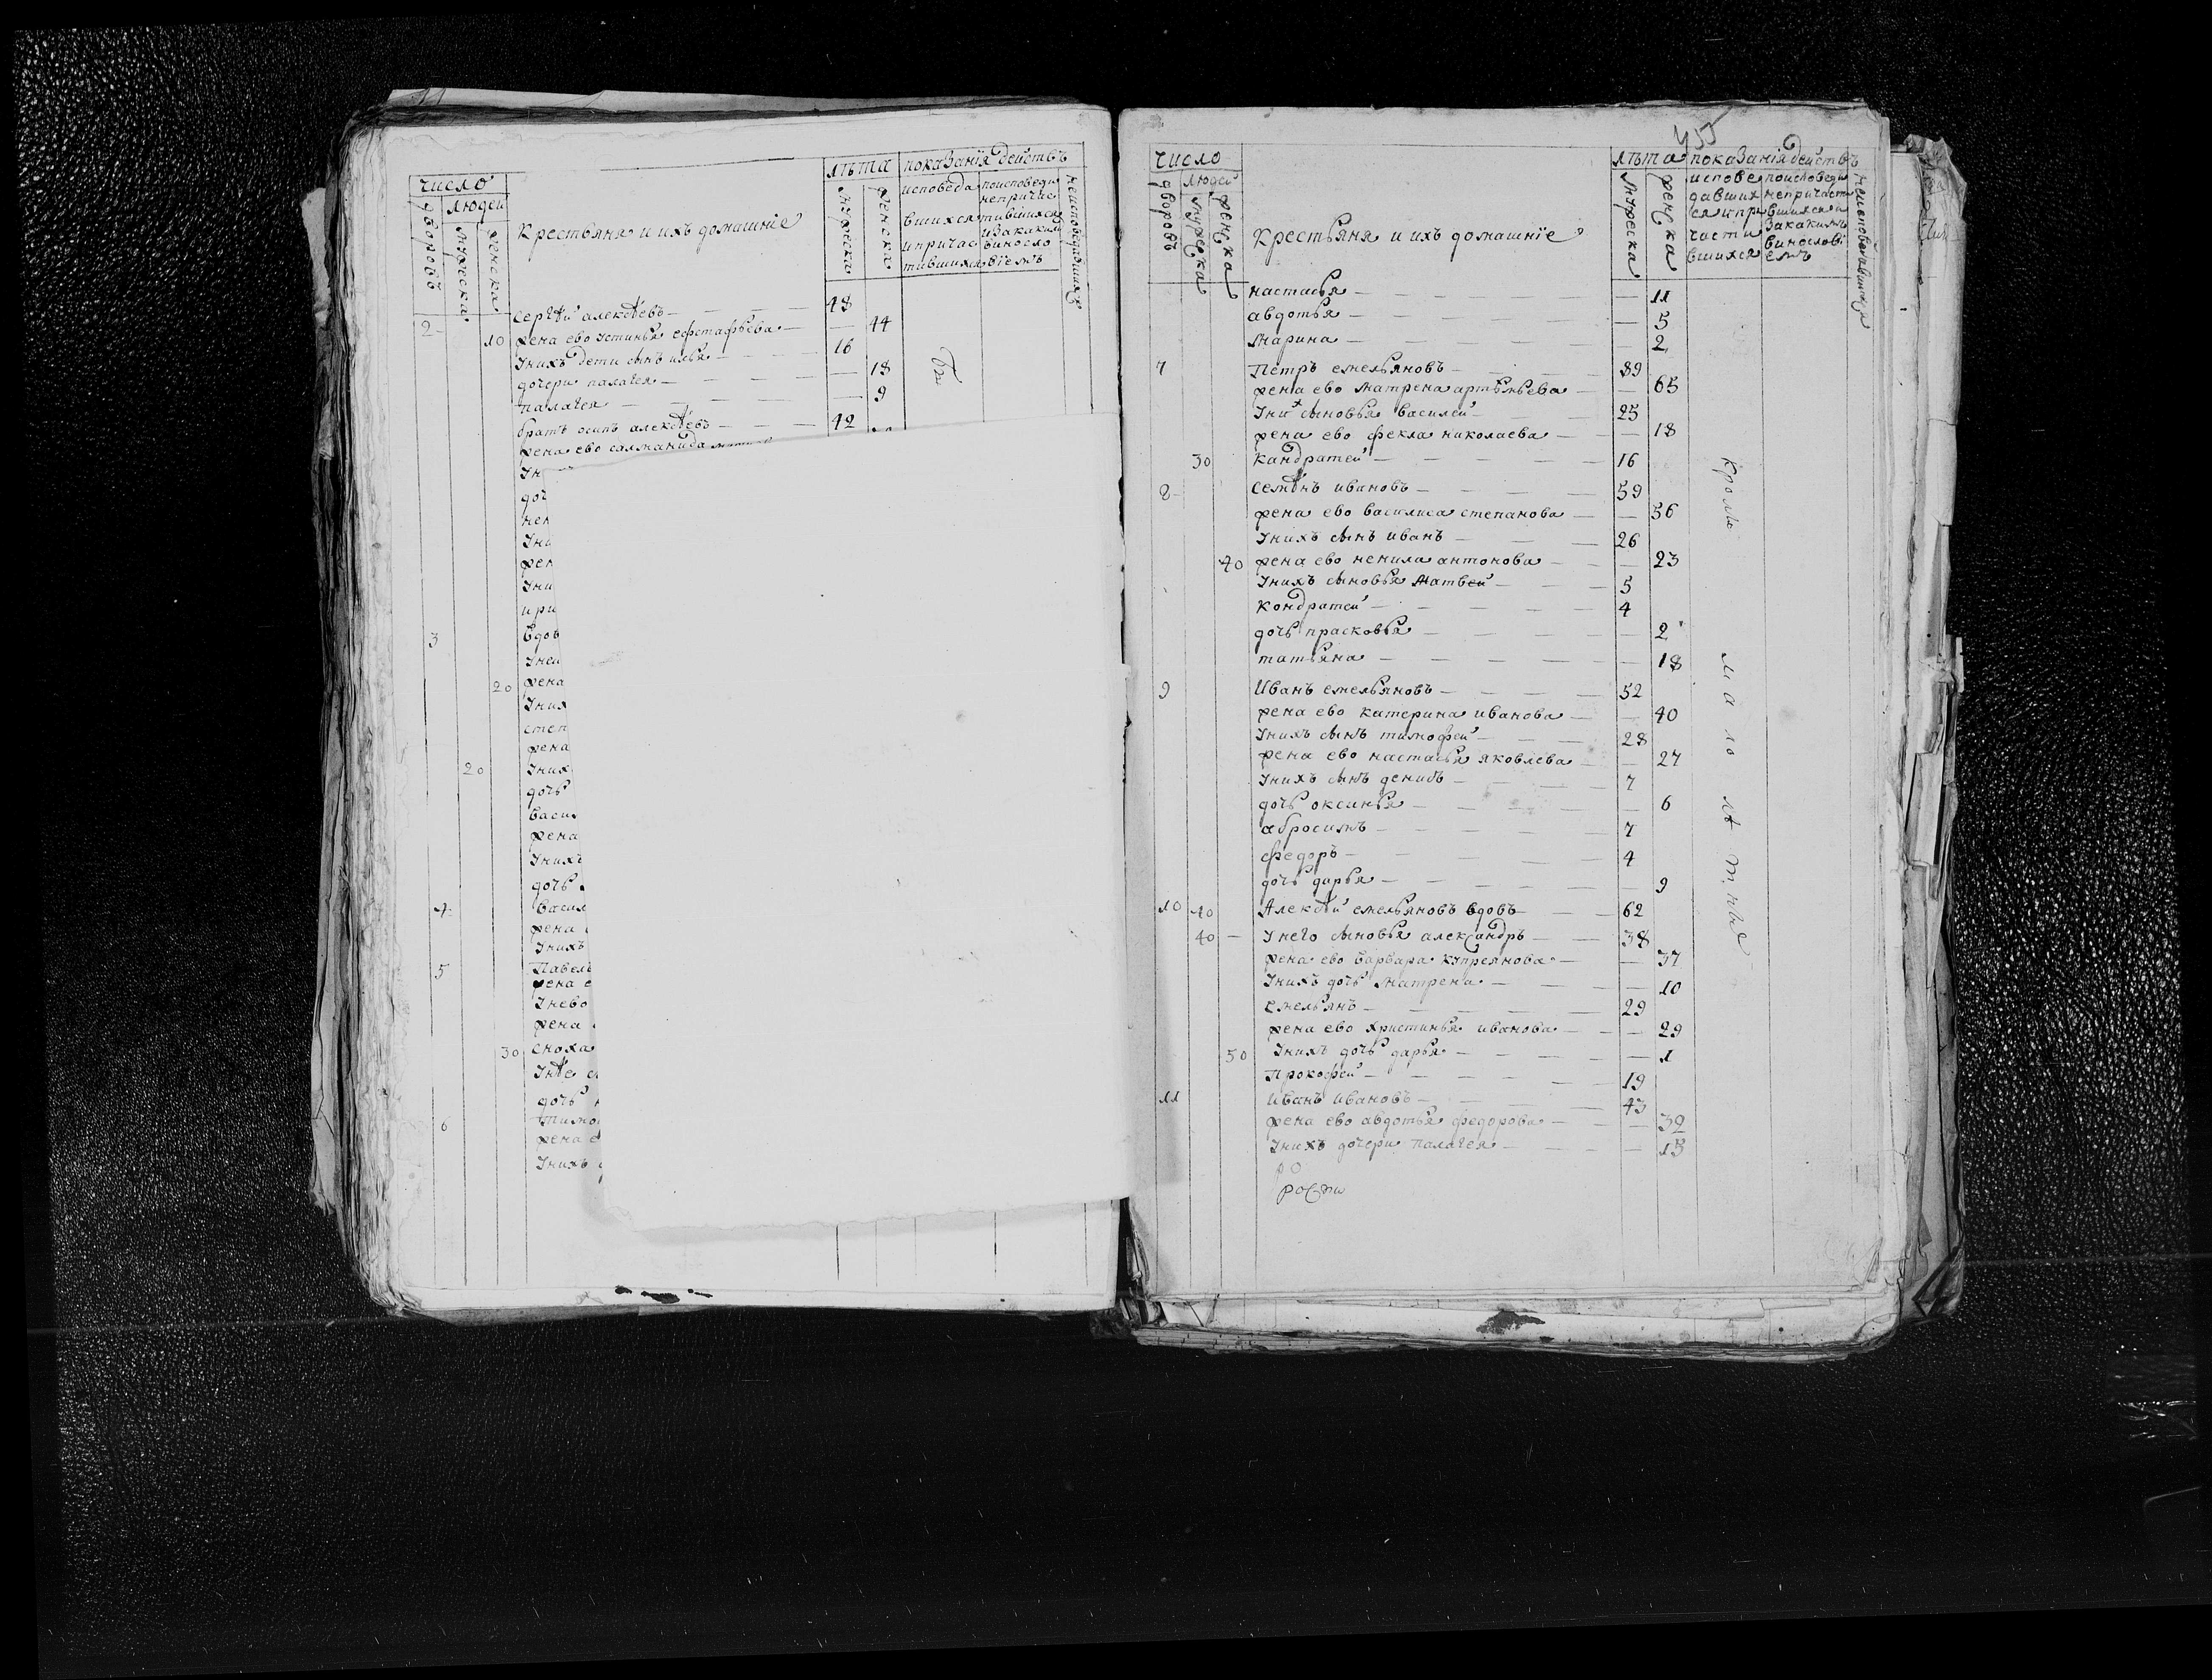 число
людей
дворовъ
мужеска
женска
Крестьяня и ихъ домашнїе
лѣта
мужеска
женска
показанїя действъ
исповеда
вшихся
ипричас
тившихся
поисповеди
непричас
тившихся
изакаким
винosло
вїемъ
неисповедавшихся
2
Сергѣй алексѣевъ — 48
10 жена ево устинья еѳстафьева — 44
Унихъ дети сынъ илья — 16
дочери палагея — 18
палагея — 9
братъ осипъ алексѣевъ — 42
жена ево саламанида
Ун
доч
нен
Уни
жен
Уни
ири
3 Вдов
Уней
20 жена
Уних
степ
жена
20 Уних
дочь
васил
жена
Унихъ
дочь
4 Васил
жена
Унихъ
5 Павелъ
жена е
Унево
жена
30 сноха
Унѣе с
дочь
6 Тимо
жена е
Унихъ
455
число
людей
дворовъ
мужеска
женска
Крестьяня и ихъ домашнїе
лѣта
мужеска
женска
показанїя действъ
исповe
давших
ся ипри
части
вшихся
поисповеди
непричасти
вшихся и
закакимъ
винословї
емъ
неисповедавшихся
настасья — 11
авдотья — 5
марина — 2
7 Петръ емельяновъ — 89
жена ево матрена артѣмьева — 65
Унихъ сыновья василей — 25
жена ево фекла николаева — 18
30 кандратей — 16
8 Семѣнъ ивановъ — 59
жена ево василиса степанова — 56
Унихъ сынъ иванъ — 26
40 жена ево ненила антонова — 23
Унихъ сыновья матвей — 5
кондратей — 4
дочь прасковья — 2
татьяна — 18
9 Иванъ емельяновъ — 52
жена ево катерина иванова — 40
Унихъ сынъ тимофей — 28
жена ево настасья яковлева — 27
Унихъ сынъ денисъ — 7
дочь оксинья — 6
абросимъ — 7
федоръ — 4
дочь дарья — 9
10 40 Алексѣй емельяновъ вдовъ — 62
40 — Унего сыновья александръ — 38
жена ево варвара купреянова — 37
Унихъ дочь матрена — 10
емельянъ — 29
жена ево христинья иванова — 29
50 Унихъ дочь дарья — 1
Прокофей — 19
11 Иванъ ивановъ — 43
жена ево авдотья федорова — 39
Унихъ дочери палагея — 13
ро
роспи
Кромѣ
малолѣтныхъ